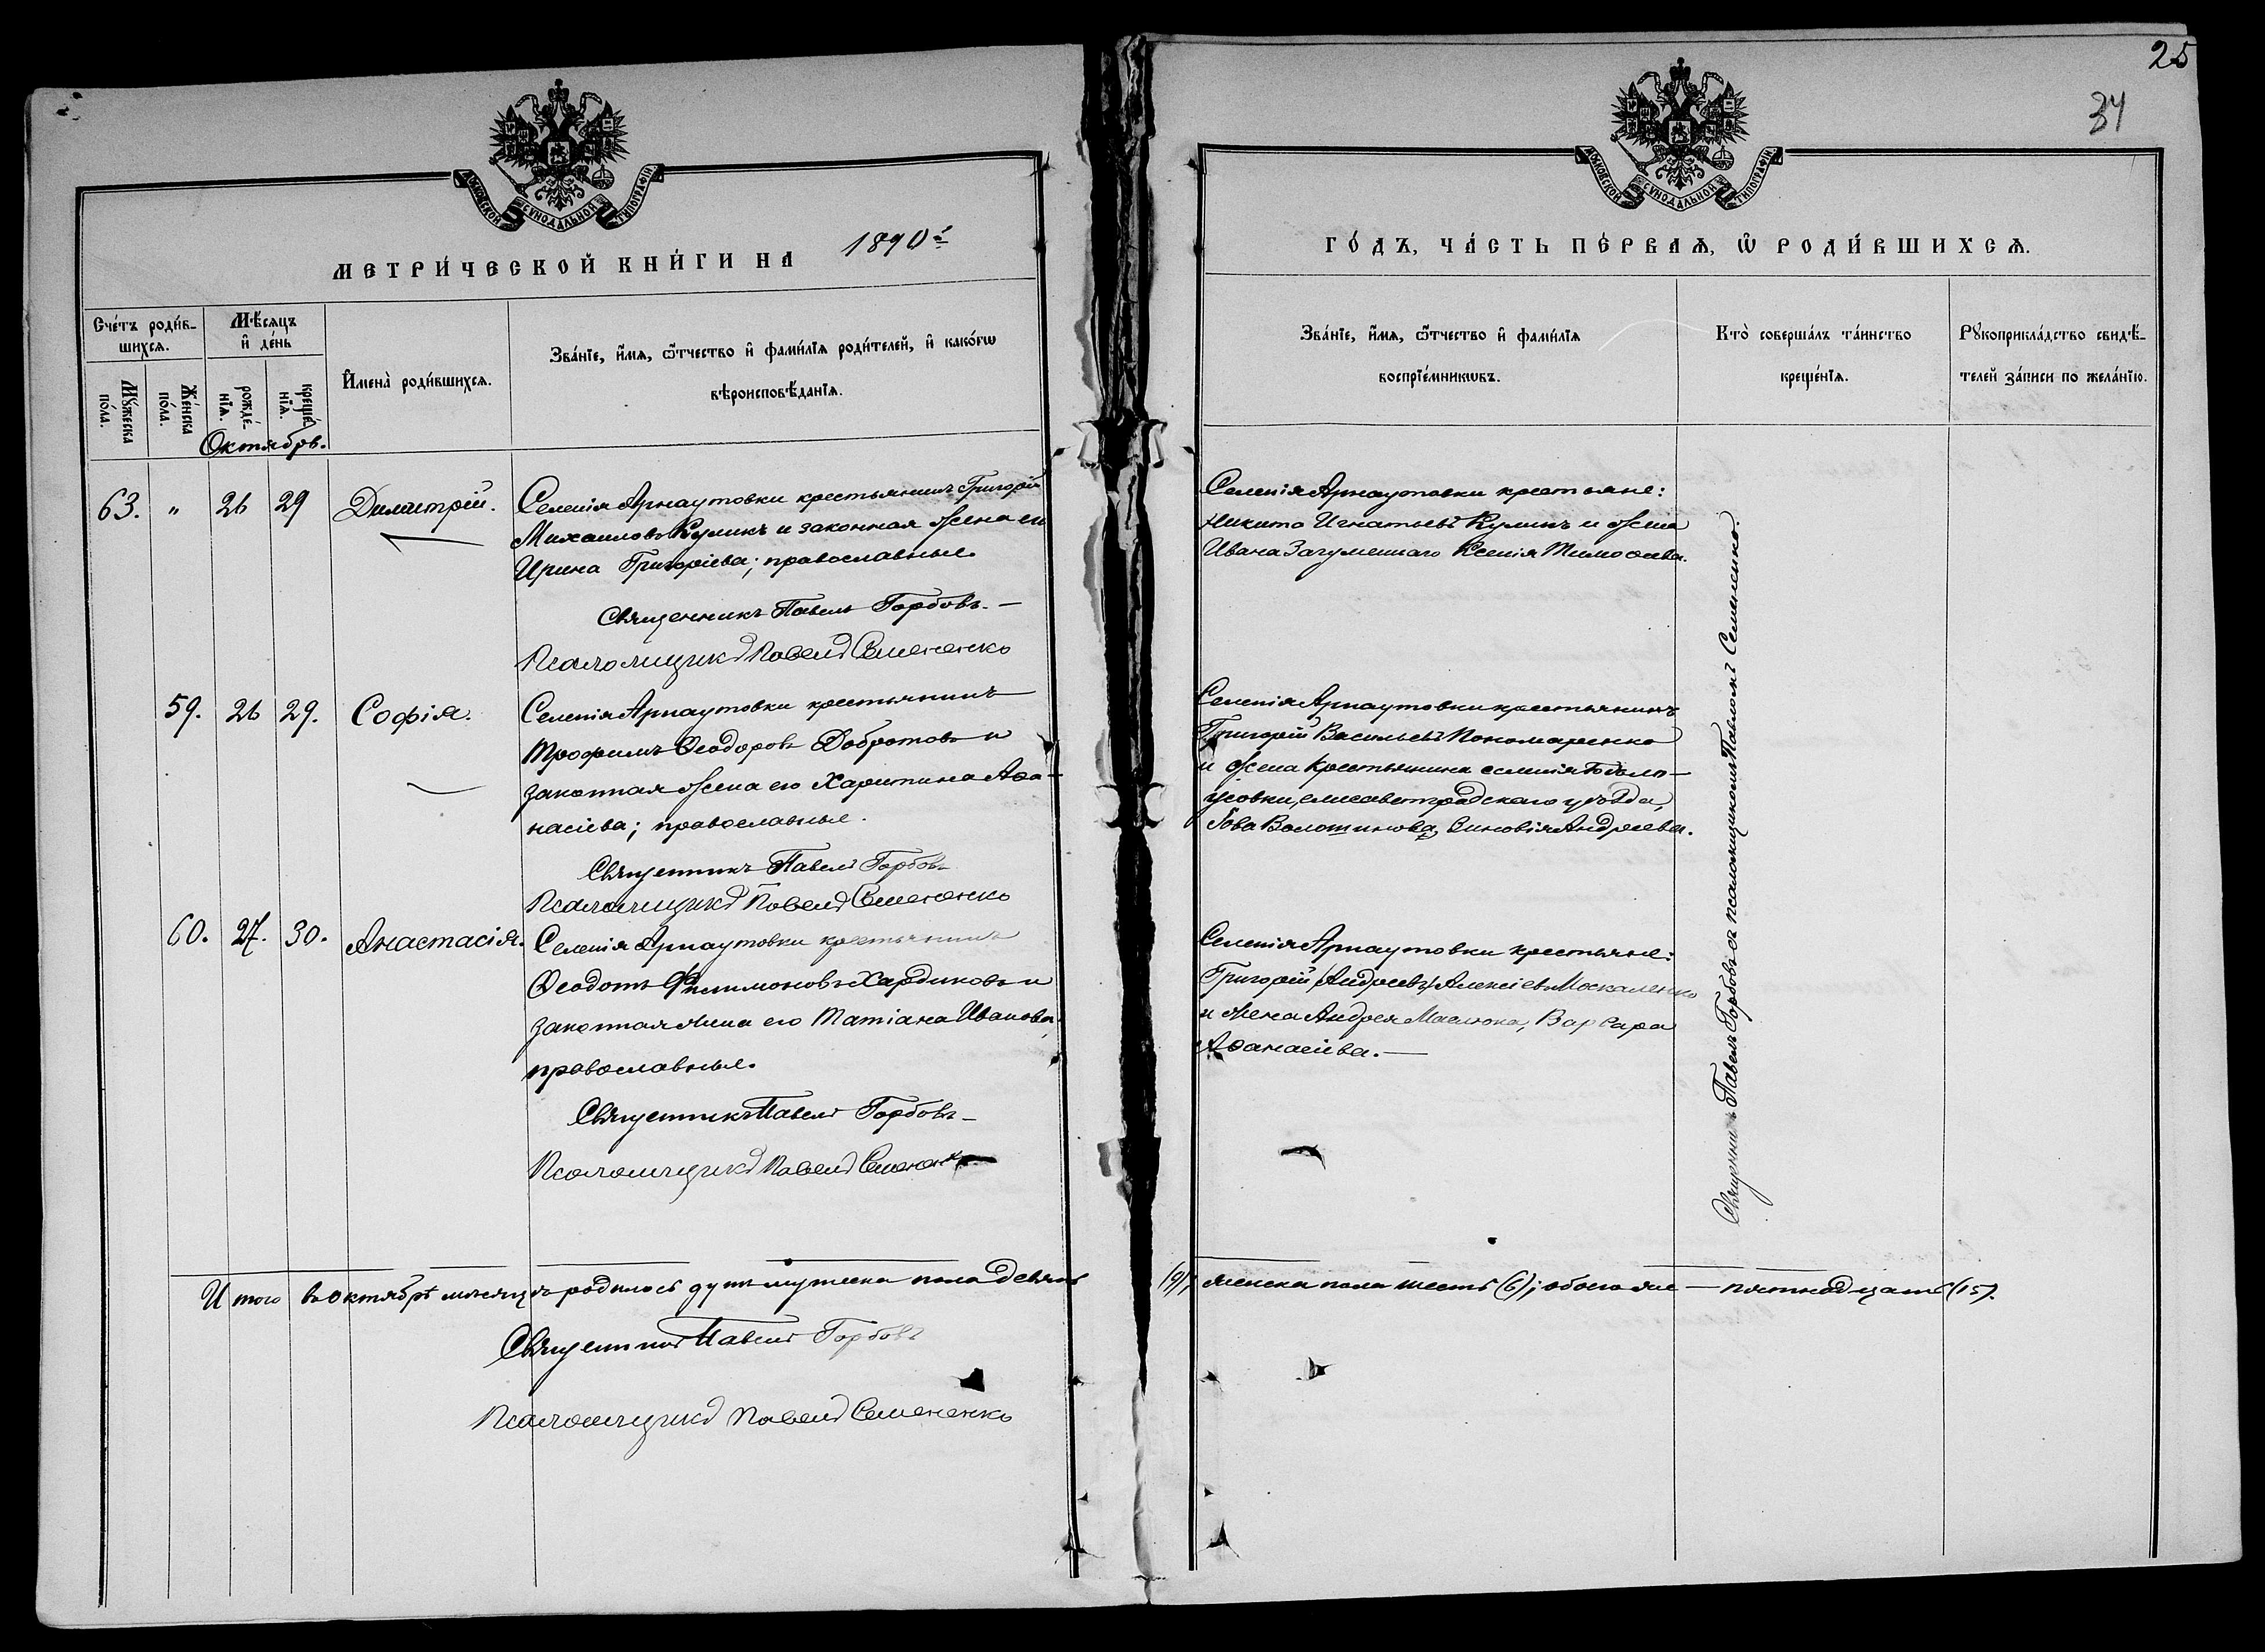 25
34
МОСКОВСКОЙ СѴНОДАЛЬНОЙ ТИПОГРАФІИ
МОСКОВСКОЙ СѴНОДАЛЬНОЙ ТИПОГРАФІИ
МЕТРИ́ЧЕСКОЙ КНИ́ГИ НА 1890й
ГО́ДЪ, ЧА́СТЬ ПЕ́РВАѦ, Ѿ РОДИ́ВШИХСѦ.
Сче́тъ роди́в-
шихсѧ.
Мꙋ́жеска по́ла.
Же́нска по́ла.
Мѣ́сѧцъ
и҆ де́нь
рожде́-нїѧ.
креще́-нїѧ.
И҆мена̀ роди́вшихсѧ.
Зва́нїе, и҆́мѧ, ѻ҆́тчество и҆ фами́лїѧ роди́телей, и҆ како́гѡ
вѣроисповѣ́данїѧ.
Зва́нїе, и҆́мѧ, ѻ҆́тчество и҆ фами́лїѧ
воспрїе́мникѡвъ.
Кто̀ соверша́лъ та́инство
креще́нїѧ.
Рꙋкоприкла́дство свидѣ́-
телей за́писи по жела́нїю.
Октябрь.
63. " 26 29 Димитрій.
Селенія Арнаутовки крестьянинъ Григорій
Михаиловъ Куликъ и законная жена его
Ирина Григоріева; православные.
Священникъ Павелъ Горбовъ. —
Псаломщикъ Павелъ Семененко
Селенія Арнаутовки крестьяне:
Никита Игнатьевъ Куликъ и жена
Ивана Загуменнаго Ксенія Тимоѳеева.
59. 26 29. Софія.
Селенія Арнаутовки крестьянинъ
Трофимъ Ѳеодоровъ Добротовъ и
законная жена его Харитина Аѳа-
насіева; православные.
Священникъ Павелъ Горбовъ
Псаломщикъ Павелъ Семененко
Селенія Арнаутовки крестьянинъ
Григорій Васильевъ Пономаренко
и жена крестьянина селенія
елисаветградскаго уѣзда,
Волошинова, Зиновія Андреева.
60. 27. 30. Анастасія.
Селенія Арнаутовки крестьянинъ
Ѳеодотъ Филимоновъ Хардиковъ и
законная жена его Татіана Иванова,
православные.
Священникъ Павелъ Горбовъ —
Псаломщикъ Павелъ Семененко
Селенія Арнаутовки крестьяне:
Григорій (Андреевъ) Алексіевъ Москаленко
и жена Андрея Маслюка, Варвара
Аѳанасіева. —
Священникъ Павелъ Горбовъ съ псаломщикомъ Павломъ Семененко.
Итого въ октябрѣ мѣсяцѣ родилось душъ мужеска пола девять (9); женска пола шесть (6); обоего же — пятнадцать (15).
Священникъ Павелъ Горбовъ
Псаломщикъ Павелъ Семененко